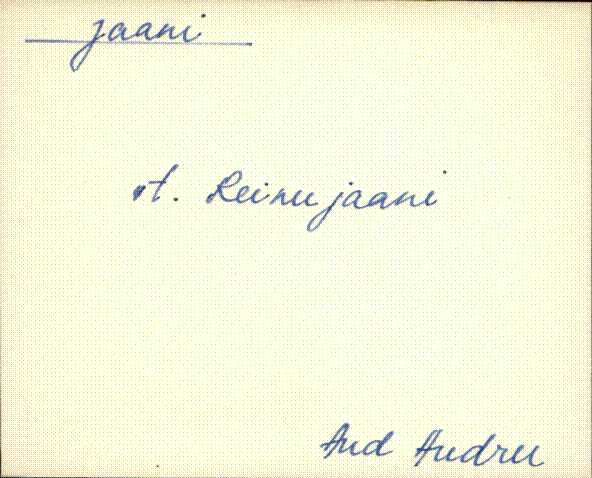 Jaani
vt. Reinujaani
Aud Audru